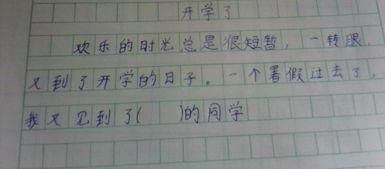 开学了
欢乐的时光总是很短暂，一转眼，
又到了开学的日子。一个暑假过去了，
我又见到了(　　)的同学